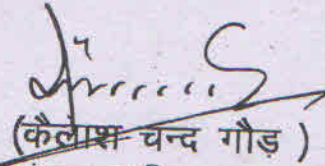 (कैलाश चन्द गौड़ )